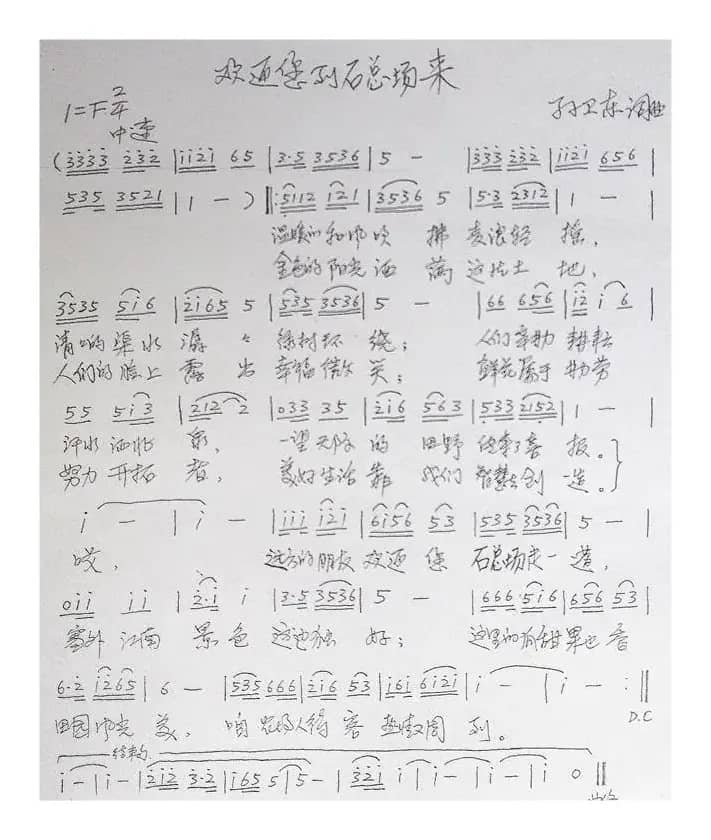 欢迎您到石总场来
1=F 2/4
中速
孙卫东词曲
(3333 232 | 1121 65 | 3·5 3536 | 5 — | 333 232 | 1121 656 |
535 3521 | 1 — ) ‖: 5112 121 | 3536 5 | 5·3 2312 | 1 — |
温暖的和风吹拂麦浪轻摇,
金色的阳光洒满这片土地,
3535 516 | 2165 5 | 535 3536 | 5 — | 66 656 | 12 1 6 |
清清的渠水潺々绿树环绕;人们辛勤耕耘
人们的脸上露出幸福微笑;鲜花属于勤劳
55 513 | 212 2 | 033 35 | 216 563 | 533 2152 | 1 — |
汗水洒 一望无际的田野传来了喜报。
努力开拓者,美好生活靠我们智慧去创造。
1 — | 1 — | 111 121 | 6156 53 | 535 3536 | 5 — |
哎,远方的朋友欢迎您石总场走一遭,
011 11 | 2·1 1 | 3·5 3536 | 5 — | 666·516 | 656 53 |
塞外江南景色这边独好;这里的瓜甜果也香
6·2 1265 | 6 — | 535 666 | 216 53 | 161 6121 | 1 — | 1 — :‖
田园风光美,咱 人待客热情周到。
D.C
结束句
1 — | 1 — | 212 3·2 | 165 5 | 5 — | 321 1 | 1 — | 1 — | 1 0 ‖